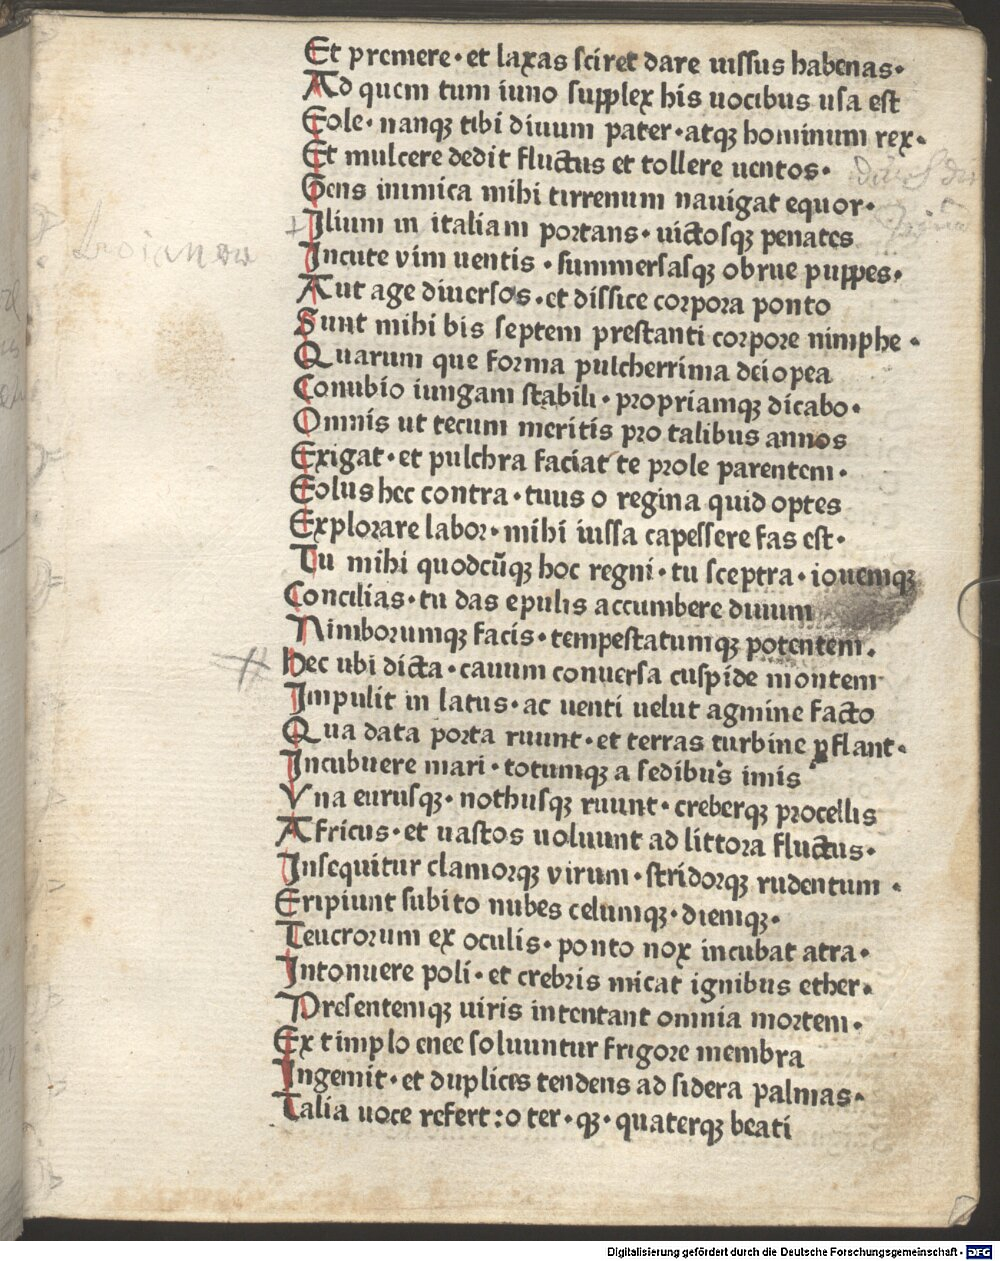 Et premere · et laxas sciret dare iussus habenas ·
Ad quem tum iuno supplex his uocibus usa est
Eole · nanqꝫ tibi diuum pater · atqꝫ hominum rex ·
Et mulcere dedit fluctus et tollere uentos ·
Gens inimica mihi tirrenum nauigat equor ·
Ilium in italiam portans · uictosqꝫ penates
troianow
Incute vim uentis · summersasqꝫ obrue puppes ·
Aut age diuersos · et dissice corpora ponto
Sunt mihi bis septem prestanti corpore nimphe ·
Quarum que forma pulcherrima deiopea
Conubio iungam stabili · propriamqꝫ dicabo ·
Omnis ut tecum meritis pro talibus annos
Exigat · et pulchra faciat te prole parentem ·
Eolus hec contra · tuus o regina quid optes
Explorare labor · mihi iussa capessere fas est ·
Tu mihi quodcūqꝫ hoc regni · tu sceptra · iouemqꝫ
Concilias · tu das epulis accumbere diuum
Nimborumqꝫ facis · tempestatumqꝫ potentem .
Hec ubi dicta · cauum conuersa cuspide montem
Impulit in latus · ac uenti uelut agmine facto
Qua data porta ruunt · et terras turbine ꝑflant ·
Incubuere mari · totumqꝫ a sedibus imis
Vna eurusqꝫ · nothusqꝫ ruunt · creberqꝫ procellis
Africus · et uastos uoluunt ad littora fluctus ·
Insequitur clamorqꝫ virum · stridorqꝫ rudentum ·
Eripiunt subito nubes celumqꝫ · diemqꝫ ·
Teucrorum ex oculis · ponto nox incubat atra ·
Intonuere poli · et crebris micat ignibus ether ·
Presentemqꝫ uiris intentant omnia mortem ·
Extimplo enee soluuntur frigore membra
Ingemit · et duplices tendens ad sidera palmas ·
Talia uoce refert : o ter · qꝫ · quaterqꝫ beati
Digitalisierung gefördert durch die Deutsche Forschungsgemeinschaft - DFG